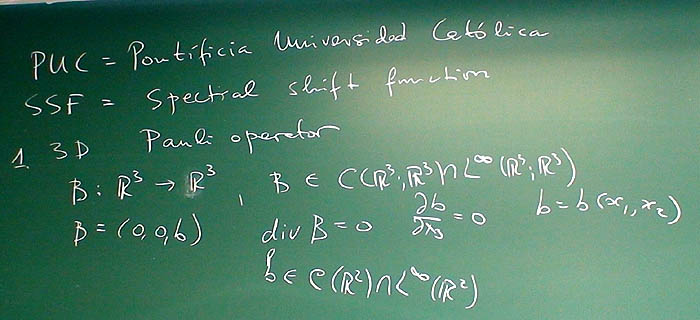 PUC = Pontificia Universidad Católica
SSF = Spectral shift function
1. 3D Pauli operator
B : ℝ³ → ℝ³ , B ∈ C(ℝ³; ℝ³) ∩ L^∞(ℝ³; ℝ³)
B = (0,0,b) div B = 0 ∂b/∂x₃ = 0 b = b(x₁, x₂)
b ∈ C(ℝ²) ∩ L^∞(ℝ²)